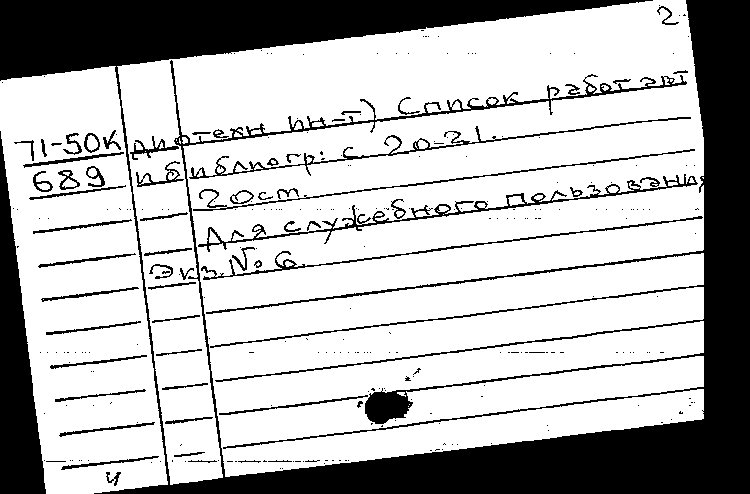 2
71-50К диотехн ин-т) Список работ авт
689 и библиогр: с 20-21.
20 ст.
Для служебного пользования
Экз. № 6.
ч